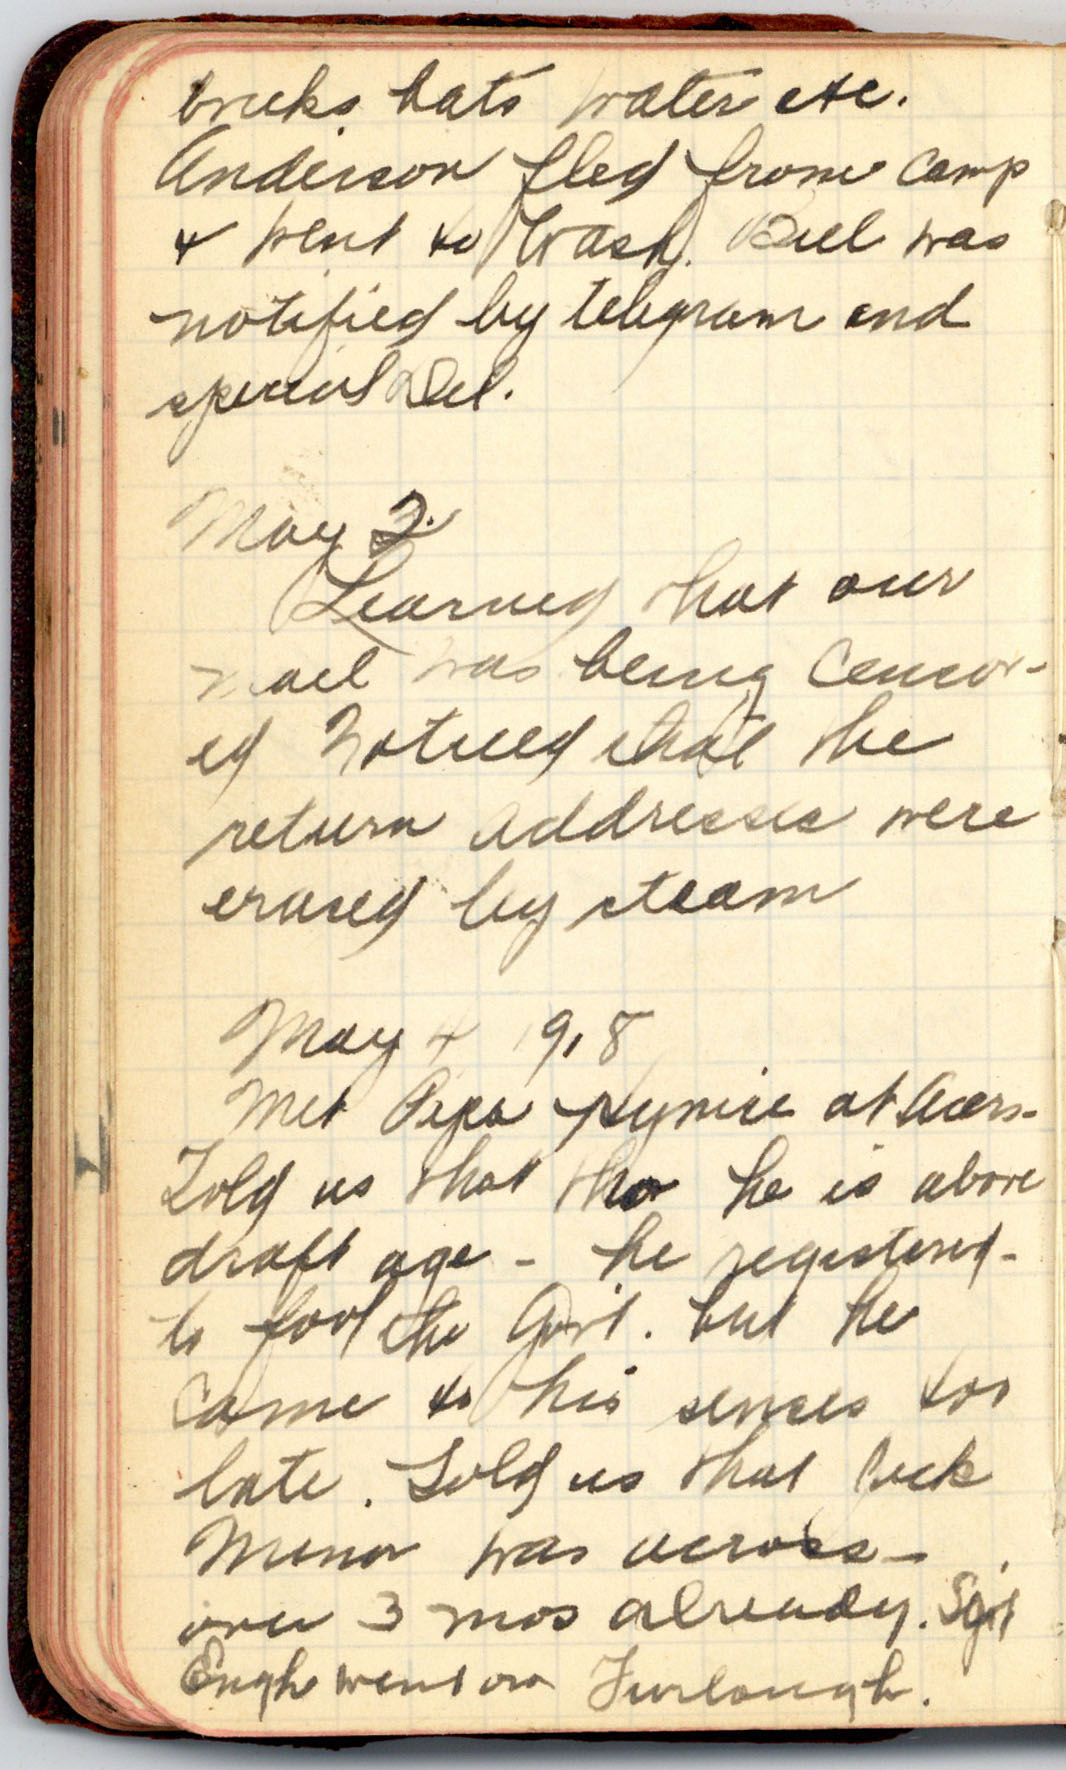 bricks bats water etc.
Anderson fled from camp
& went to Wash. Buel was
notified by telegram and
special Del.
May 2.
Learned that our
mail was being censor-
ed Noticed that the
return addresses were
erased by steam
May 4 1918
Met Papa at
Told us that tho he is above
draft age - he registered -
to fool the Govt. but he
came to his senses too
late. Told us that Jack
Minor was across -
over 3 mos already. Sgt
Engh went on Furlough.